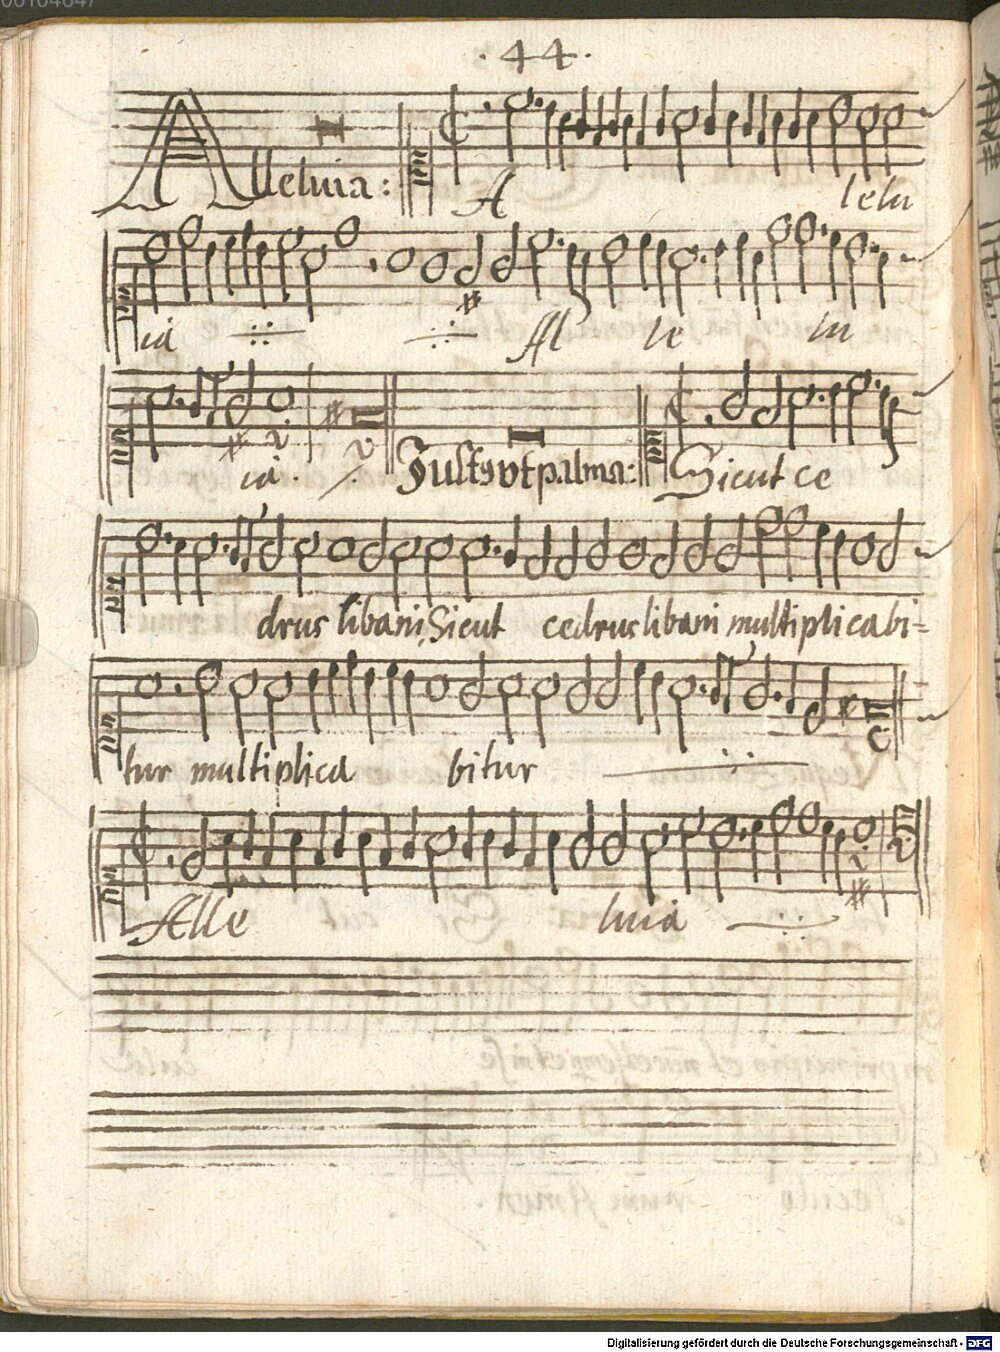 00104647
· 44 ·
Alleluia: A lelu
ia Al le lu
ia. Justus ut palma: Sicut ce
drus libani Sicut cedrus libani multiplicabi=
tur multiplica bitur
Alle luia
Digitalisierung gefördert durch die Deutsche Forschungsgemeinschaft - DFG